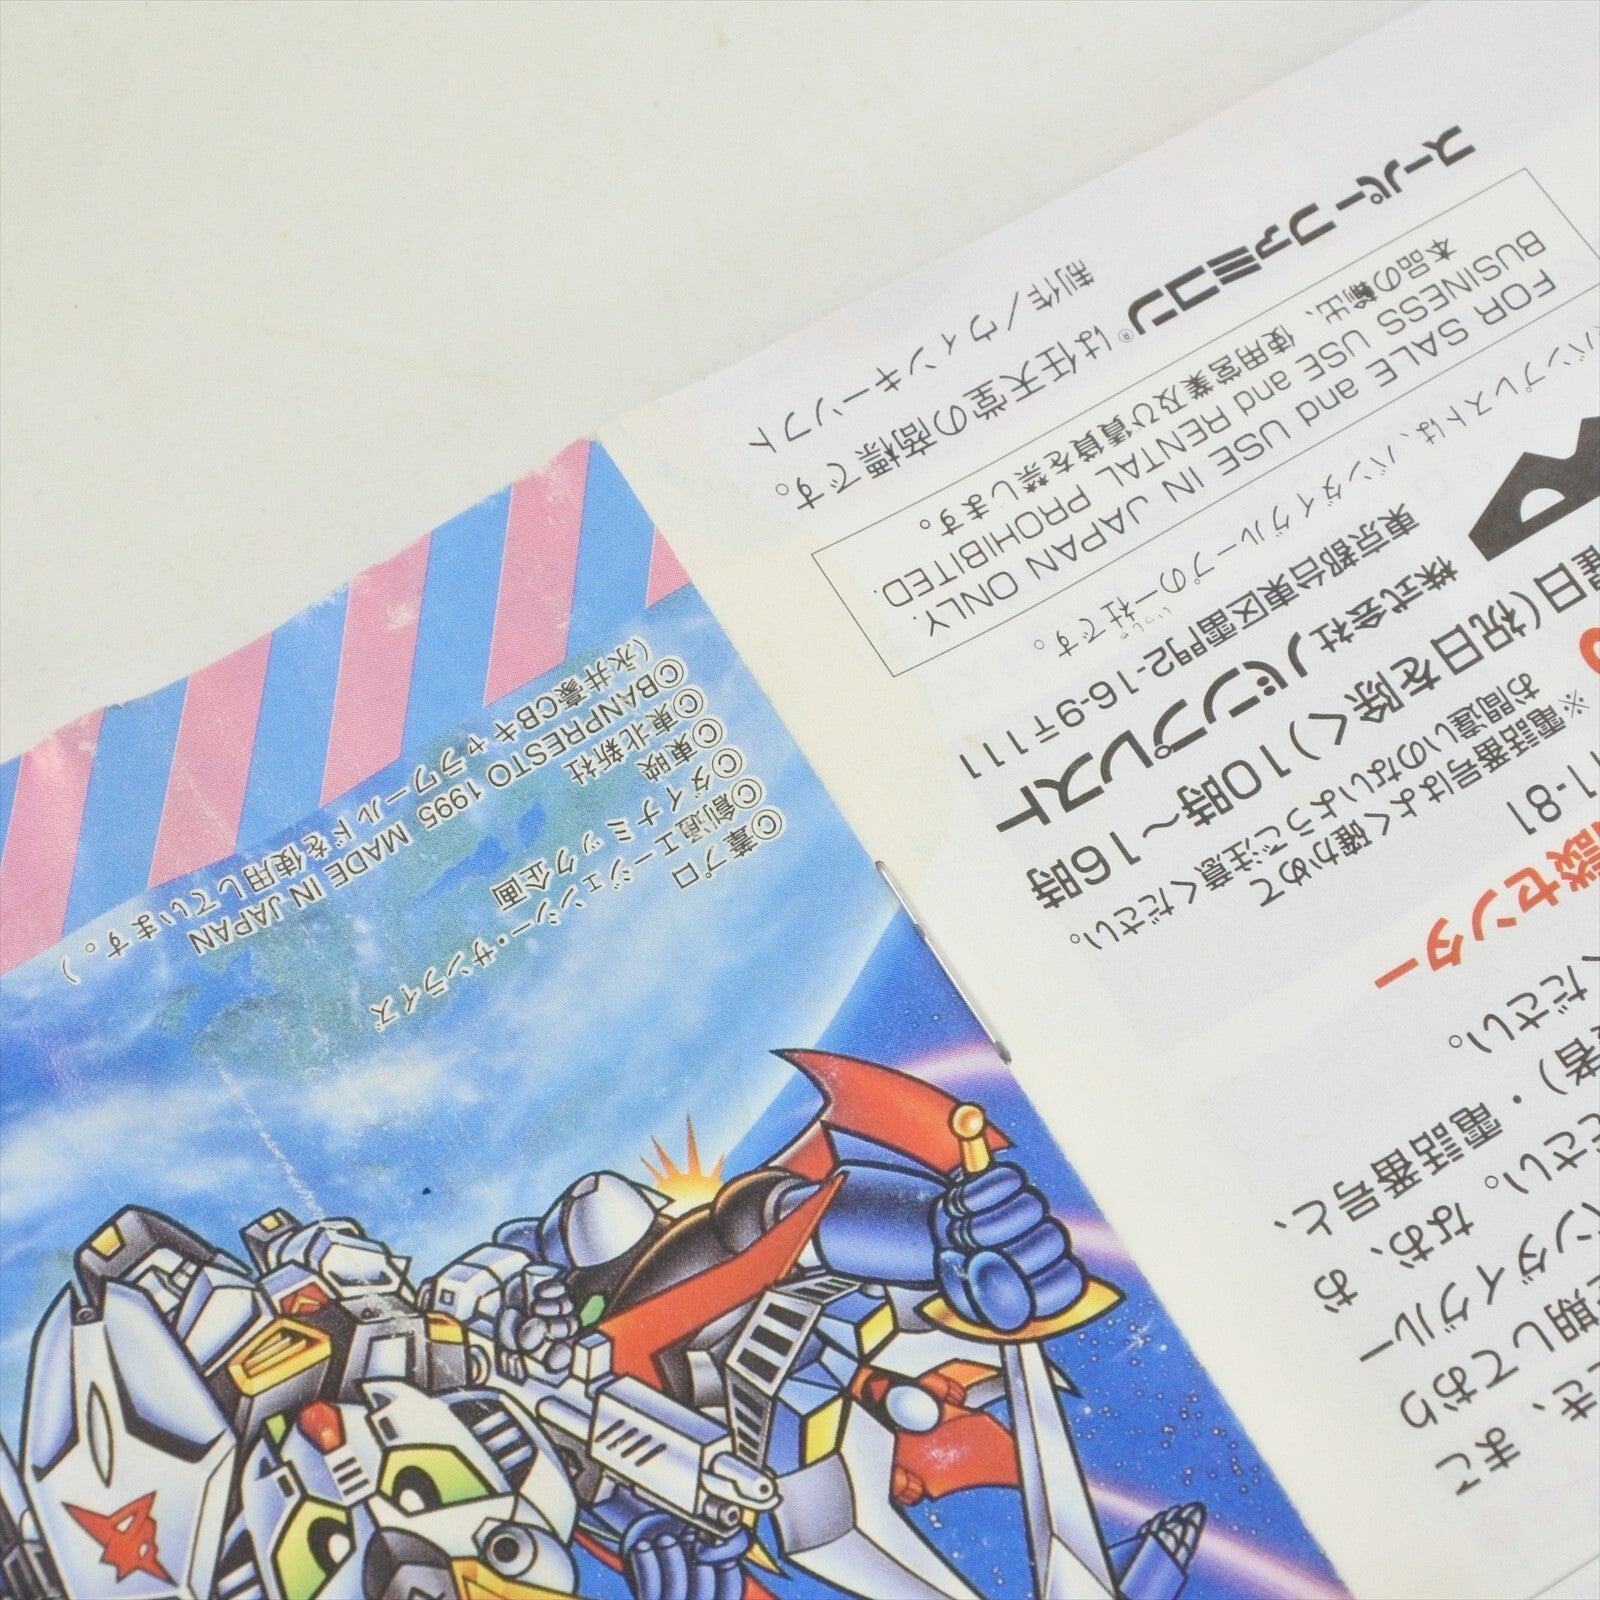 まこ
き、
期しており
ンダイグルー
ださい。なお、お
者)・電話番号と、
ください。
談センター
1-81
※電話番号はよく確かめて
お間違いのないようご注意ください。
曜日(祝日を除く)10時～16時
株式会社バンプレスト
東京都台東区雷門2-16-9〒111
バンプレストは、バンダイグループの一社です。
いっしゃ
FOR SALE and USE IN JAPAN ONLY.
BUSINESS USE and RENTAL PROHIBITED.
本品の輸出、使用営業及び賃貸を禁じます。
スーパーファミコン®は任天堂の商標です。
制作／ウィンキーソフト
©葦プロ
©創通エージェンシー・サンライズ
©ダイナミック企画
©東映
©東北新社
©BANPRESTO 1995 MADE IN JAPAN
(永井豪CBキャラワールドを使用しています。)